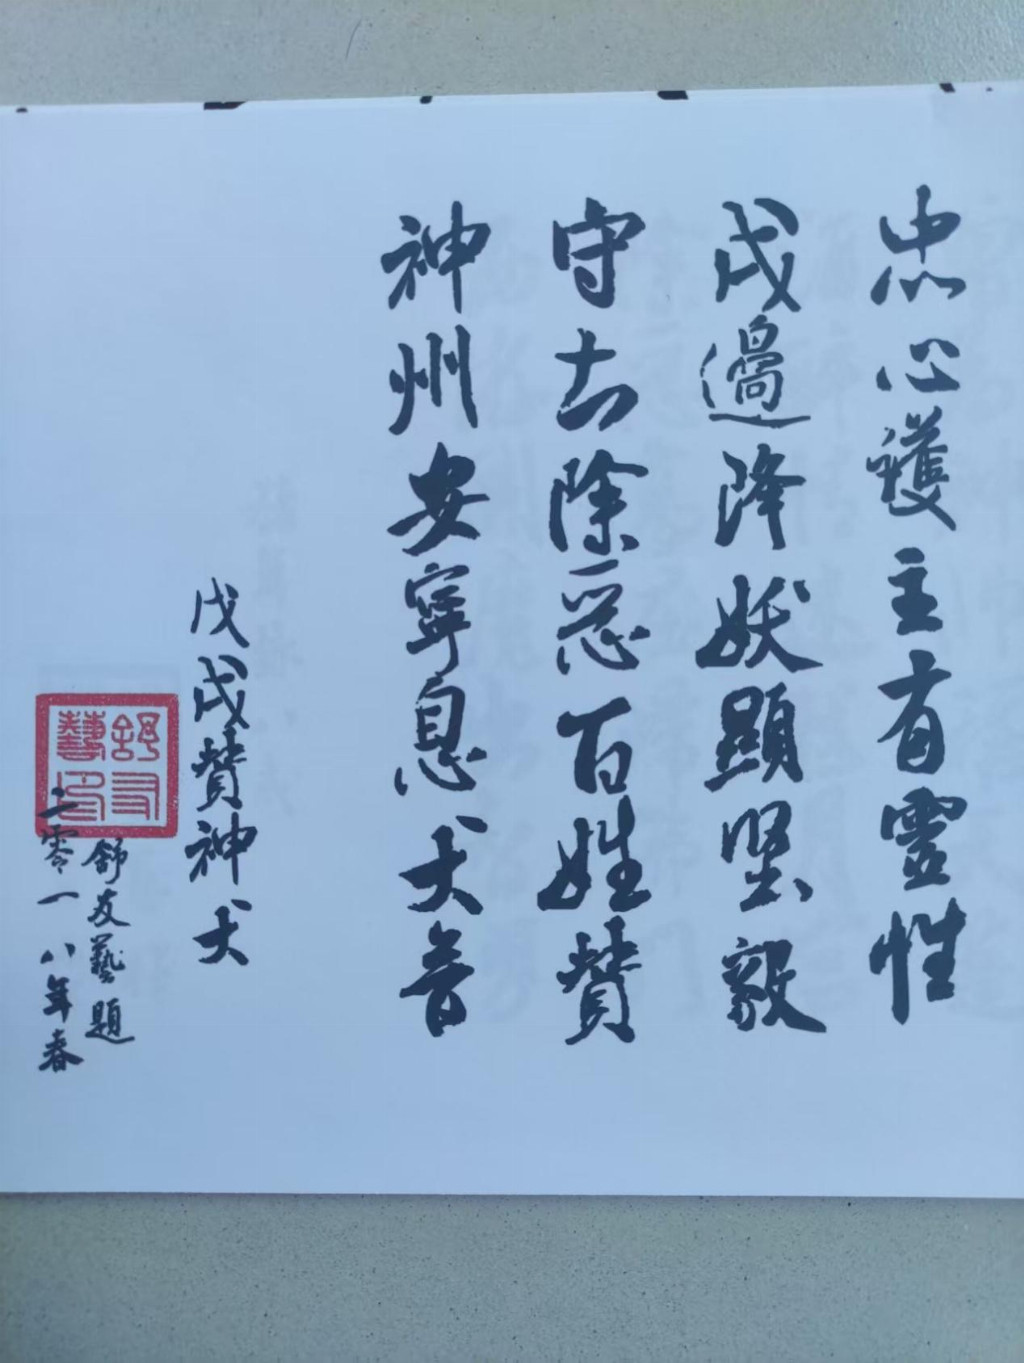 忠心護主有靈性
戍邊降妖顯堅毅
守土除惡百姓贊
神州安寧息犬音
戊戌贊神犬
舒友藝題
二零一八年春
舒友藝印